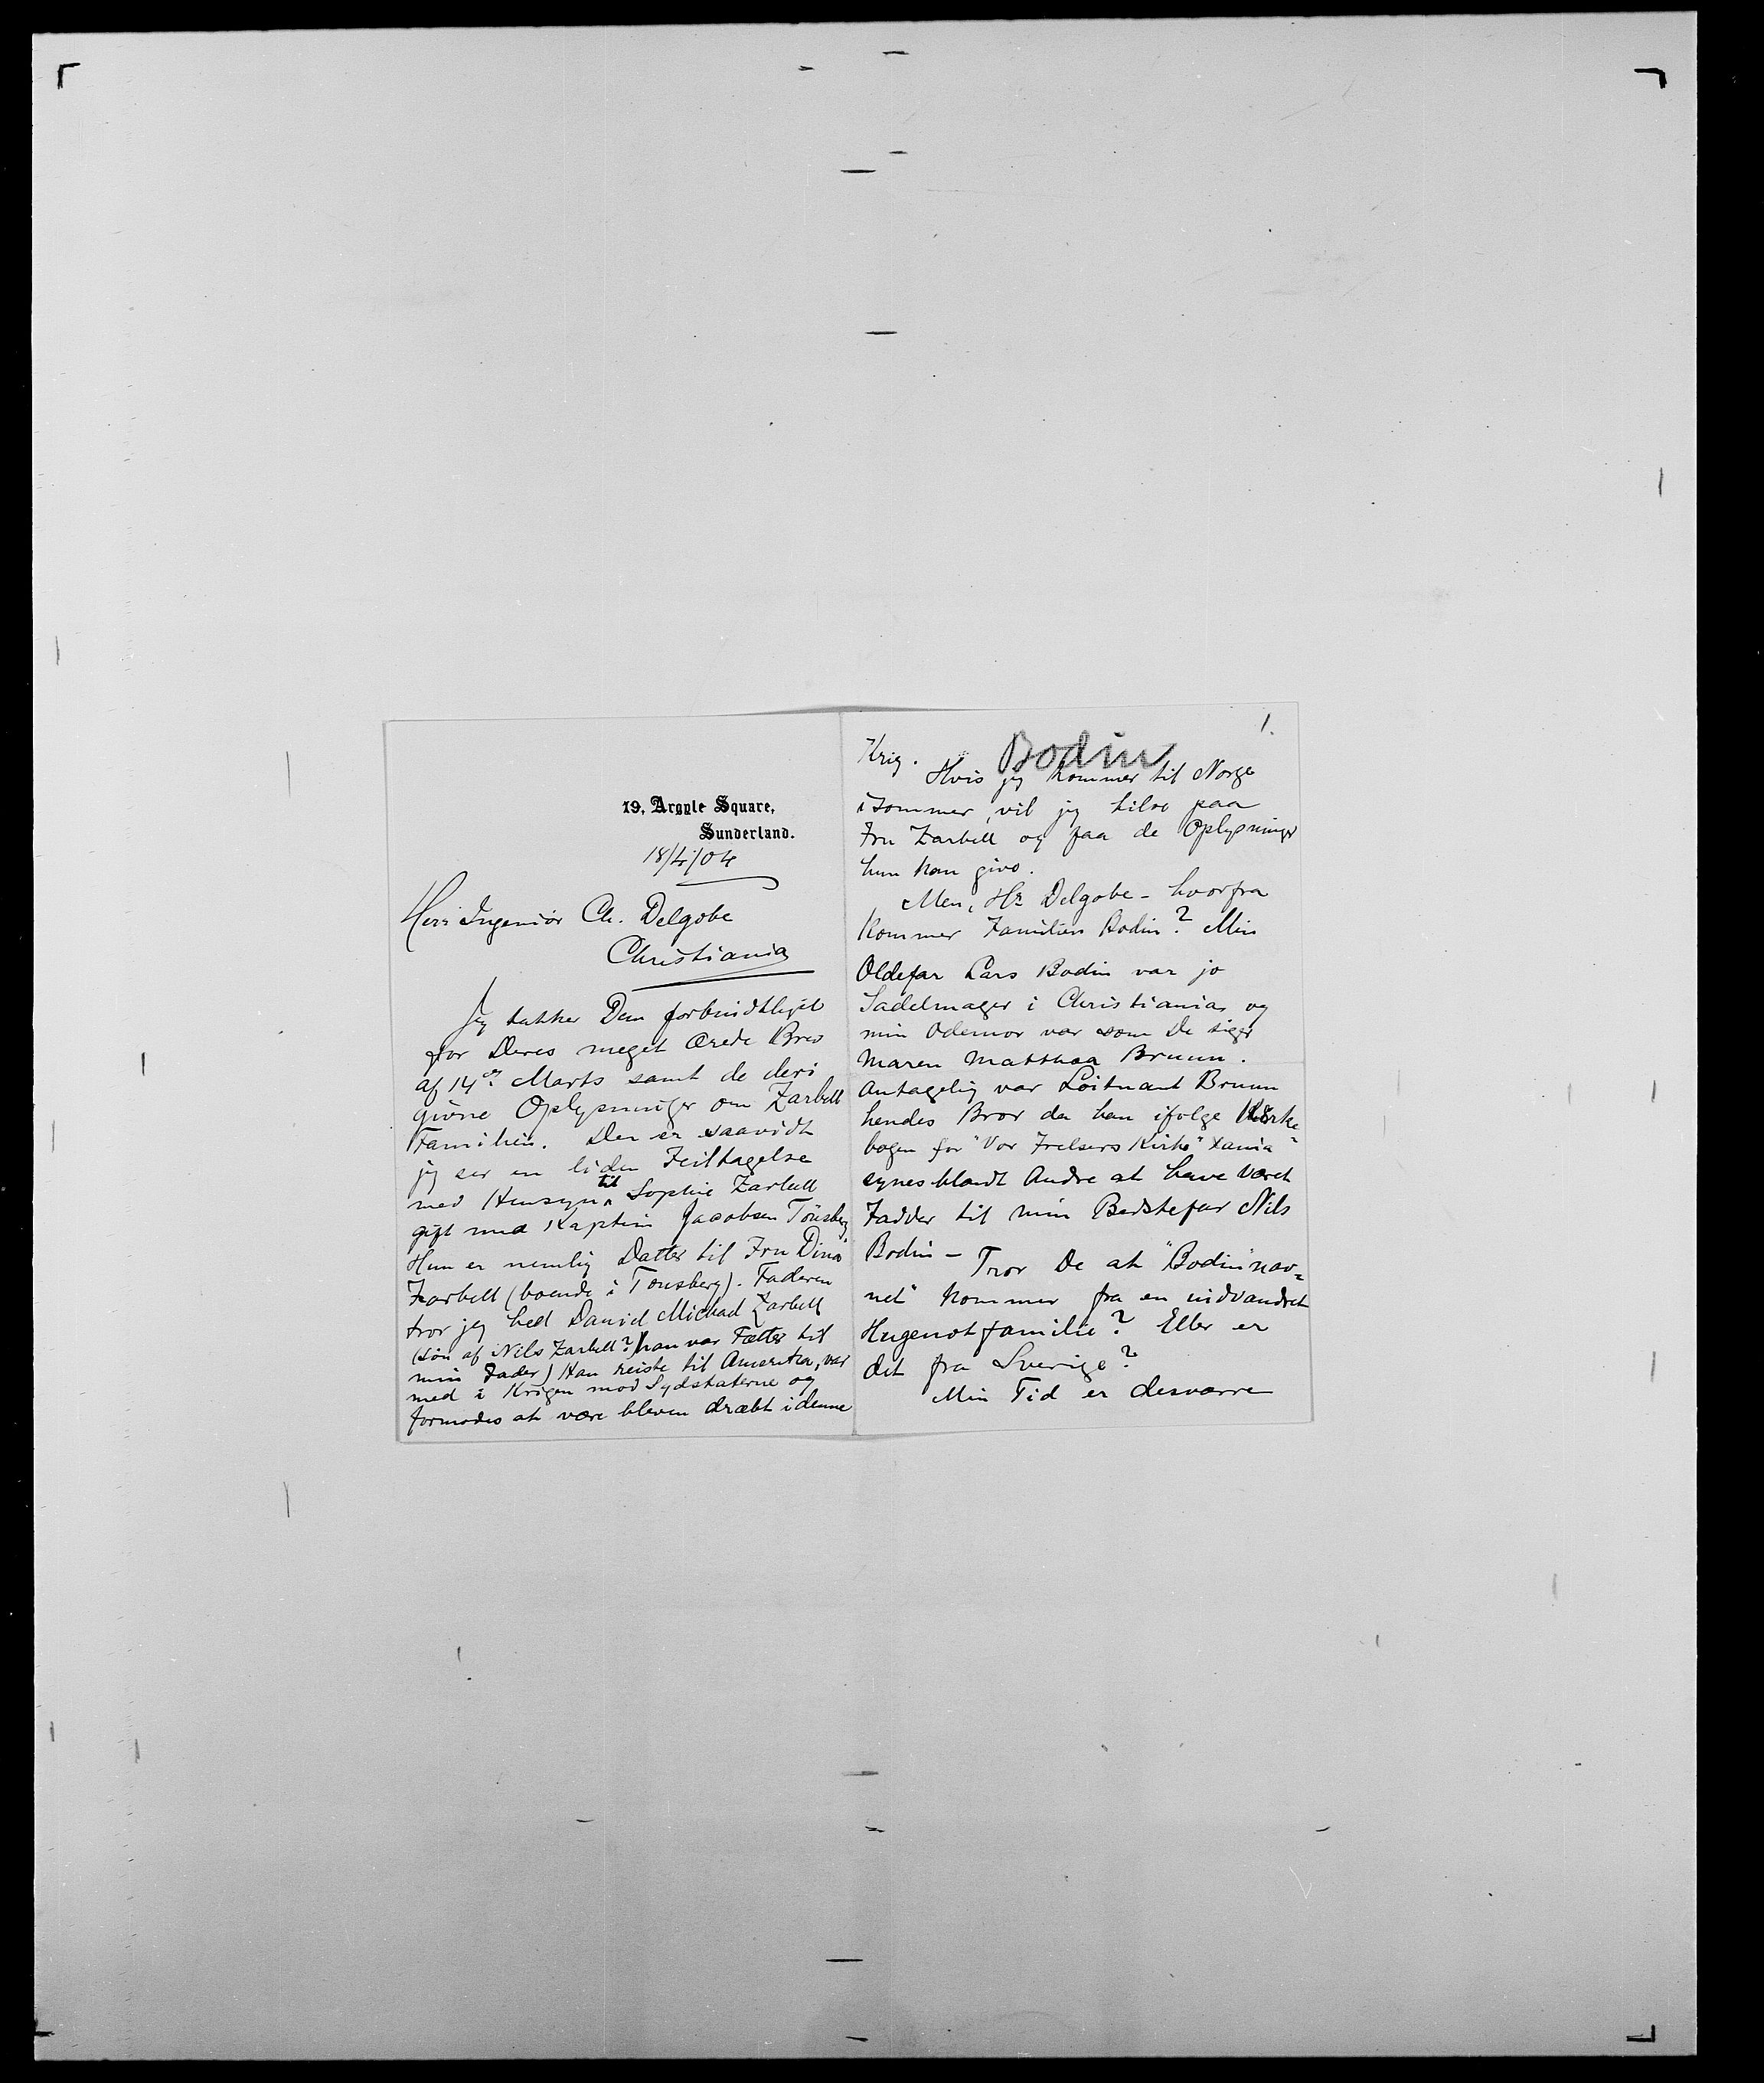 19, Argyle Square,
Sunderland.
18/4/04
Herr Ingeniör Ch. Delgobe
Christiania
Jeg takker Dem forbindtligst
for Deres meget ærede Brev
af 14de Marts samt de deri
givne Oplysninger om Zarbell
Familien. Der er saavidt
jeg ser en liden Feiltagelse
med Hensyn til Sophie Zarbell
gift med Kaptein Jacobsen Tönsberg
Hun er nemlig Datter til Fru Dina
Zarbell (boende i Tönsberg). Faderen
tror jeg hed David Michael Zarbell
(Sön af Nils Zarbell? han var Fætter til
min Fader) Han reiste til Amerika, var
med i Krigen mod Sydstaterne og
formodes at være bleven dræbt i denne
1.
Bodin
Krig.
Hvis jeg kommer til Norge
isommer, vil jeg hilse paa
Fru Zarbell og faa de Oplysninger
hun kan give.
Men, Hr Delgobe - hvorfra
kommer Familien Bodin? Min
Oldefar Lars Bodin var jo
Sadelmager i Christiania og
min Odemor var som De siger
Maren Matthea Bruun.
Antagelig var Löitnant Bruun
hendes Bror da han ifölge Kirke
bogen for "Vor Frelsers Kirke" Xania
synes blandt Andre at have været
Fadder til min Bedstefar Nils
Bodin - Tror De at "Bodin" nav=
net kommer fra en indvandret
Hugenotfamilie? Eller er
det fra Sverige?
Min Tid er desværre